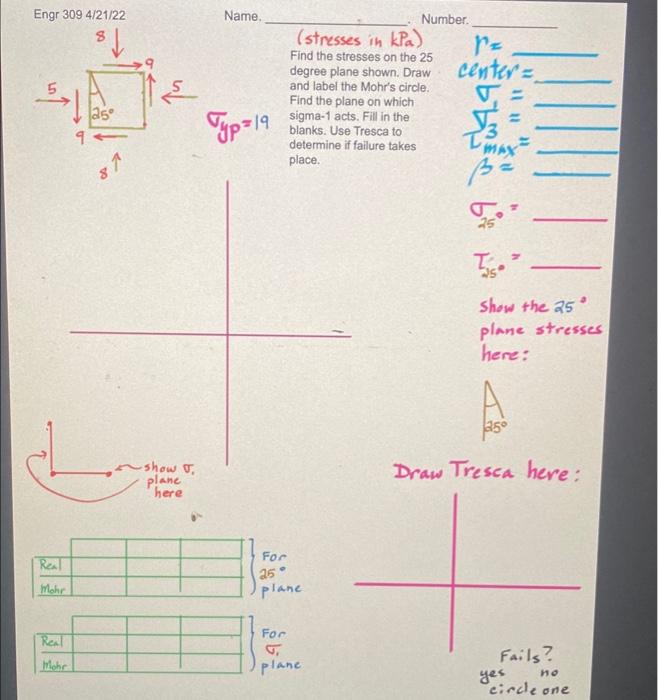 Engr 309 4/21/22
Name.
Number.
(stresses in kPa)
Find the stresses on the 25
degree plane shown. Draw
and label the Mohr's circle.
Find the plane on which
sigma-1 acts. Fill in the
blanks. Use Tresca to
determine if failure takes
place.
8
9
5
5
25°
9
8
σyp=19
r=
center=
σ1 =
σ3 =
τmax=
β=
σ25° =
τ25° =
Show the 25°
plane stresses
here:
25°
show σ1
plane
here
Draw Tresca here:
Real
Mohr
For
25°
plane
Real
Mohr
For
σ1
plane
Fails?
yes no
circle one